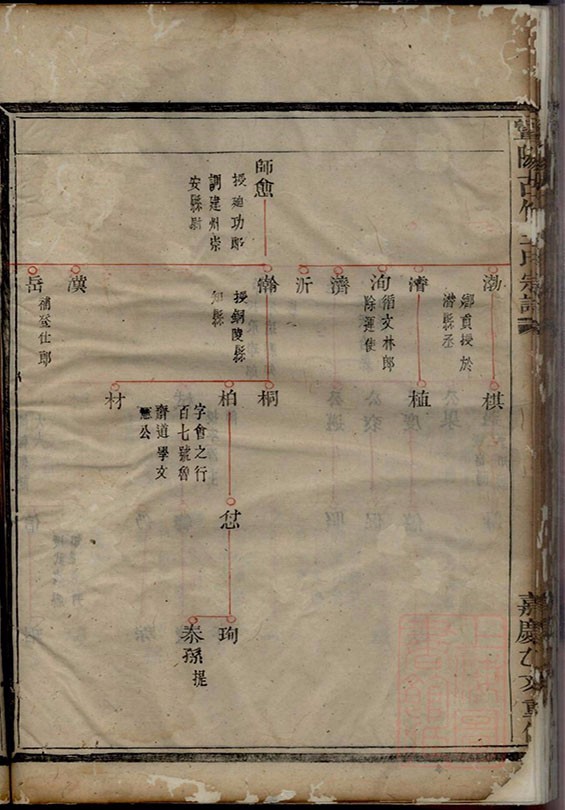 師愈
授廸功郎
調建州崇
安縣尉
渤
鄉貢授於
潛縣丞
濬
洵
循文林郎
除運使
濟
沂
瀚
授銅陵縣
知縣
漢
岳
補登仕郎
棋
植
桐
柏
字會之行
百七號魯
齋道學文
憲公
材
愆
珣
泰孫
提
宗譜
嘉慶乙亥重修